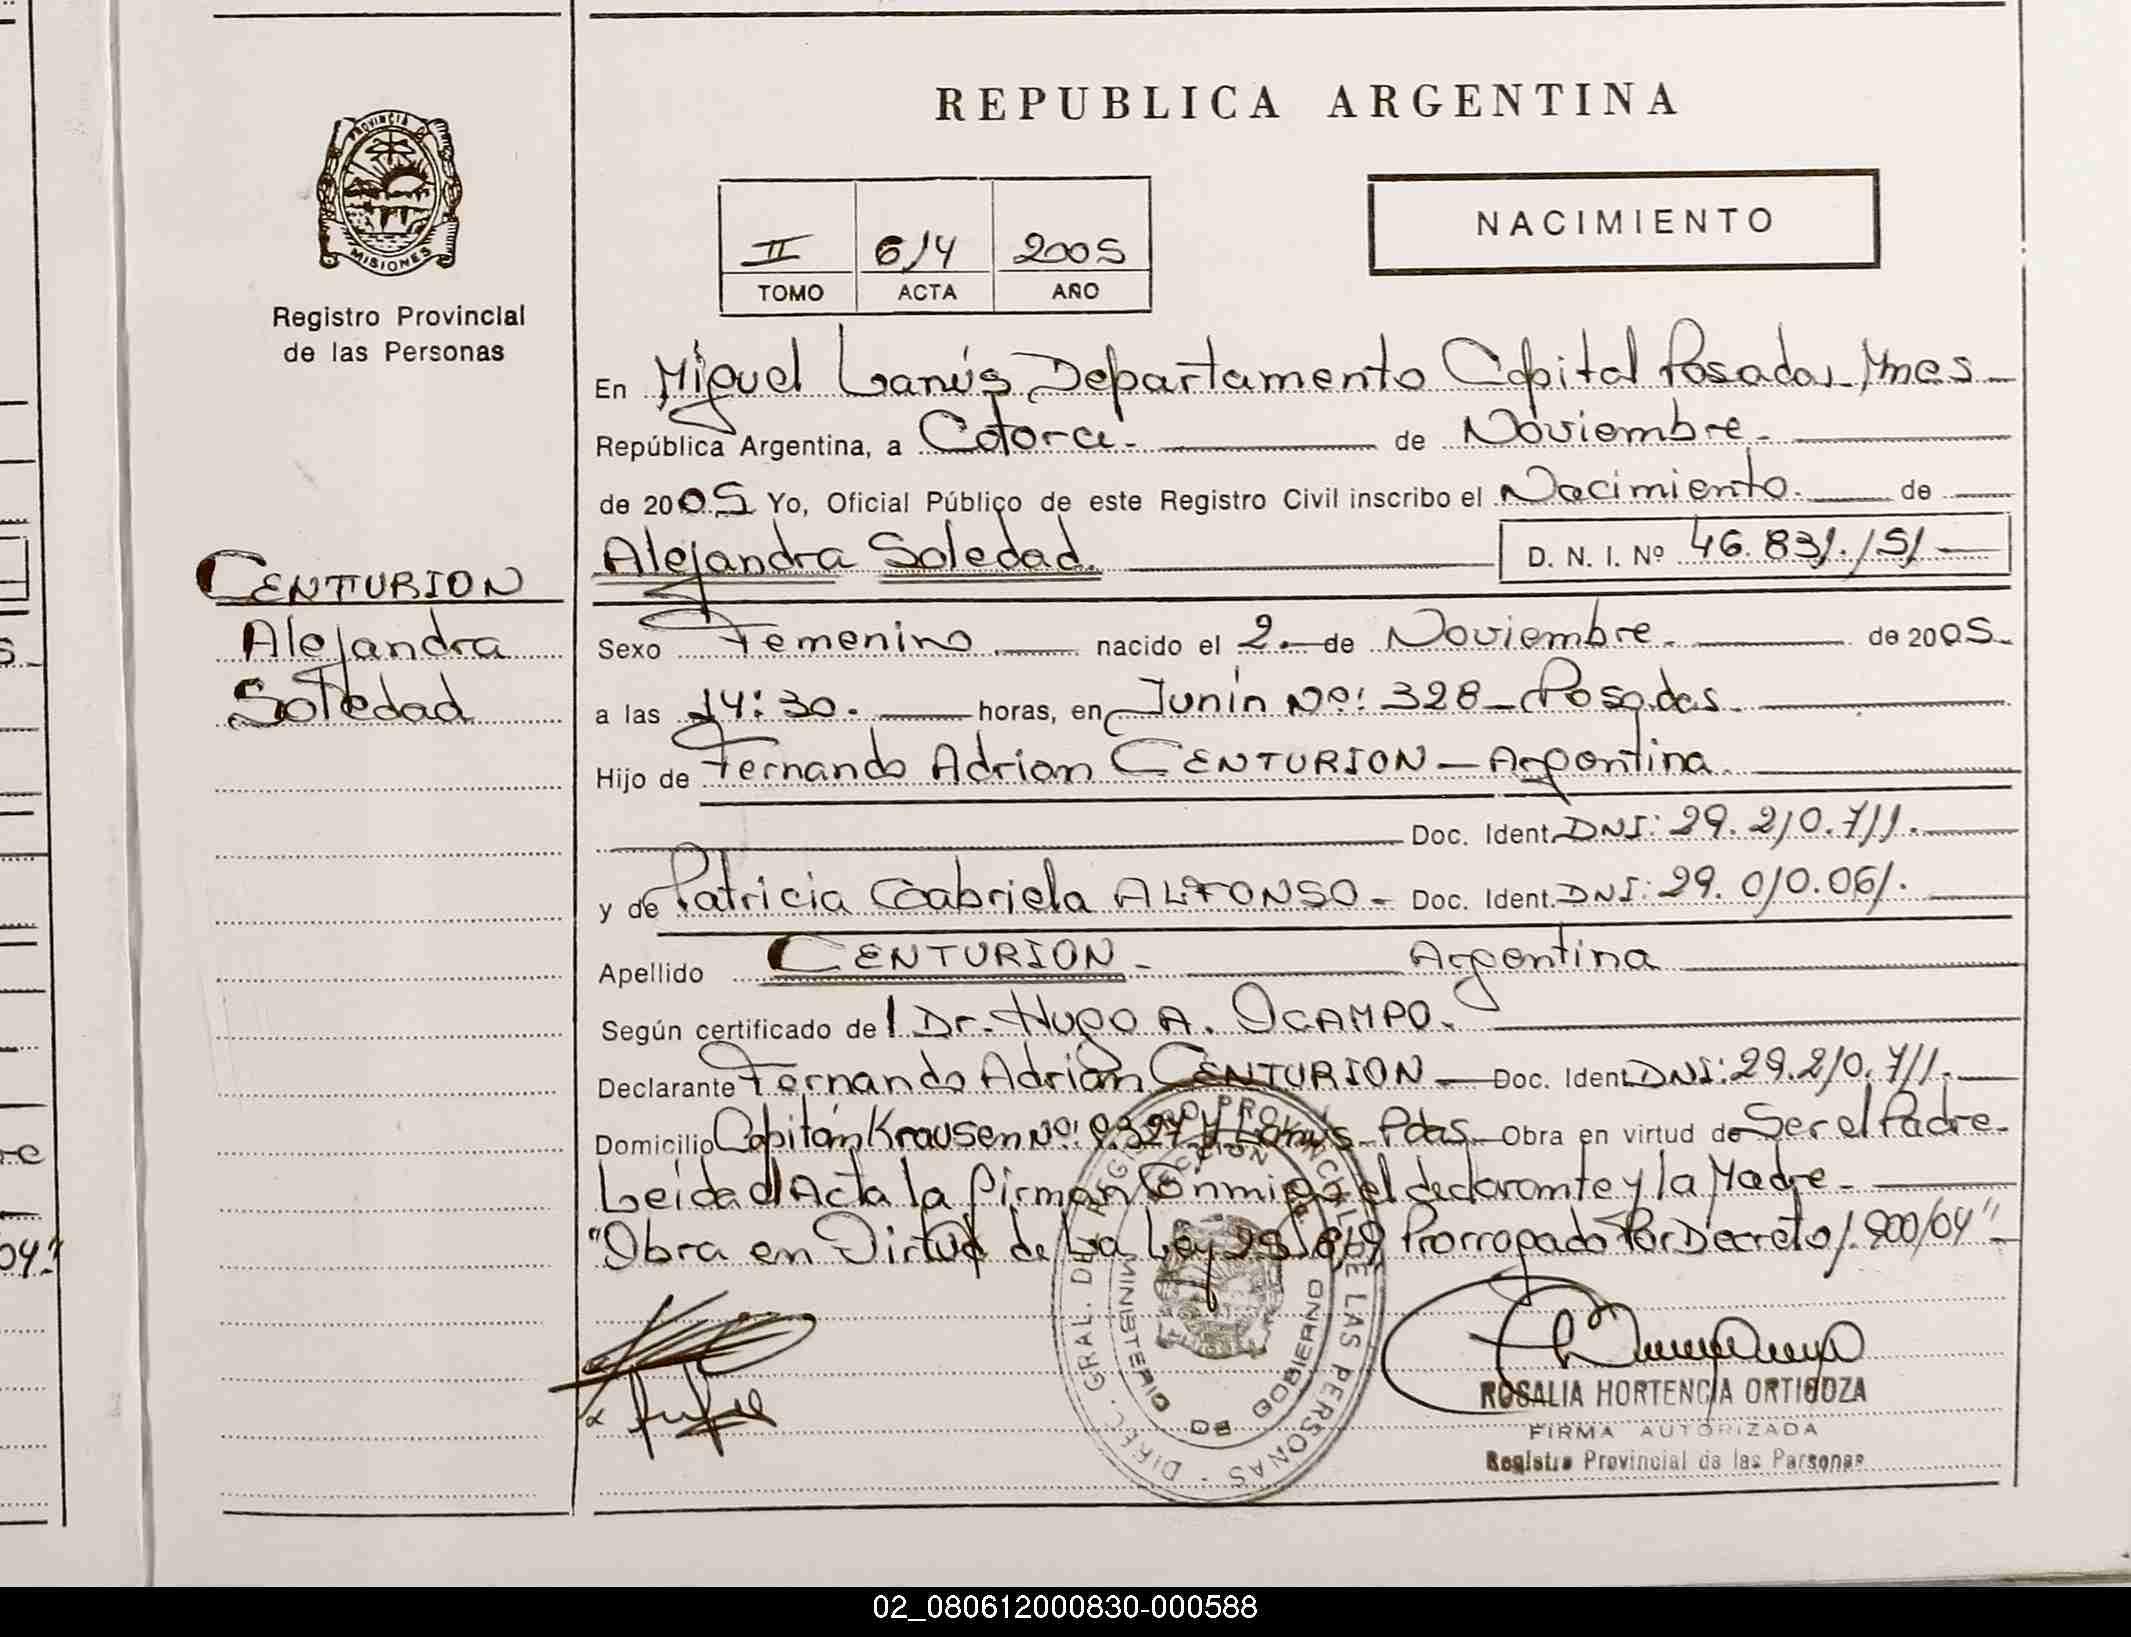 REPUBLICA ARGENTINA
PROVINCIA DE
MISIONES
Registro Provincial
de las Personas
II 614 2005
TOMO ACTA AÑO
NACIMIENTO
En Miguel Lanús, Departamento Capital Posadas, Mnes
República Argentina, a Catorce de Noviembre
de 2005 Yo, Oficial Público de este Registro Civil inscribo el Nacimiento de
Alejandra Soledad D. N. I. Nº 46.831.151
CENTURION
Alejandra
Soledad
Sexo Femenino nacido el 2 de Noviembre de 2005
a las 14:30 horas, en Junín Nº: 328 Posadas
Hijo de Fernando Adrian CENTURION Argentina
Doc. Ident. DNI: 29.210.711
y de Patricia Gabriela ALFONSO Doc. Ident. DNI: 29.010.061
Apellido CENTURION Argentina
Según certificado del Dr. Hugo A. OCAMPO
Declarante Fernando Adrian CENTURION Doc. Ident. DNI: 29.210.711
Domicilio Capitán Krausen Nº Lanus Pdas Obra en virtud de Ser el Padre
Leida el Acta la firman Conmigo el declarante y la Madre
"Obra en Virtud de La Ley Prorrogado Por Decreto 1.900/04"
DIREC. GRAL. DEL REGISTRO PROVINCIAL DE LAS PERSONAS
MINISTERIO DE GOBIERNO
ROSALIA HORTENCIA ORTIGOZA
FIRMA AUTORIZADA
Registro Provincial de las Personas
02_080612000830-000588